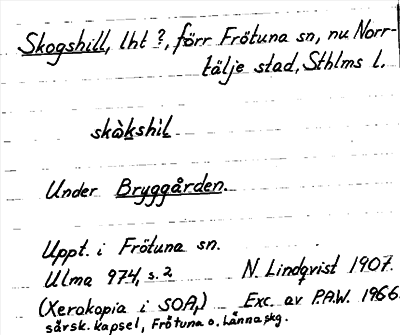 Skogshill, lht ?, förr Frötuna sn, nu Norr-
tälje stad, Sthlms l.
skàkshil
Under Bryggården.
Uppt. i Frötuna sn.
Ulma 974, s. 2 N. Lindqvist 1907.
(Xerokopia i SOA,) Exc. av P.A.W. 1966.
särsk. kapsel, Frötuna o. Länna skg.